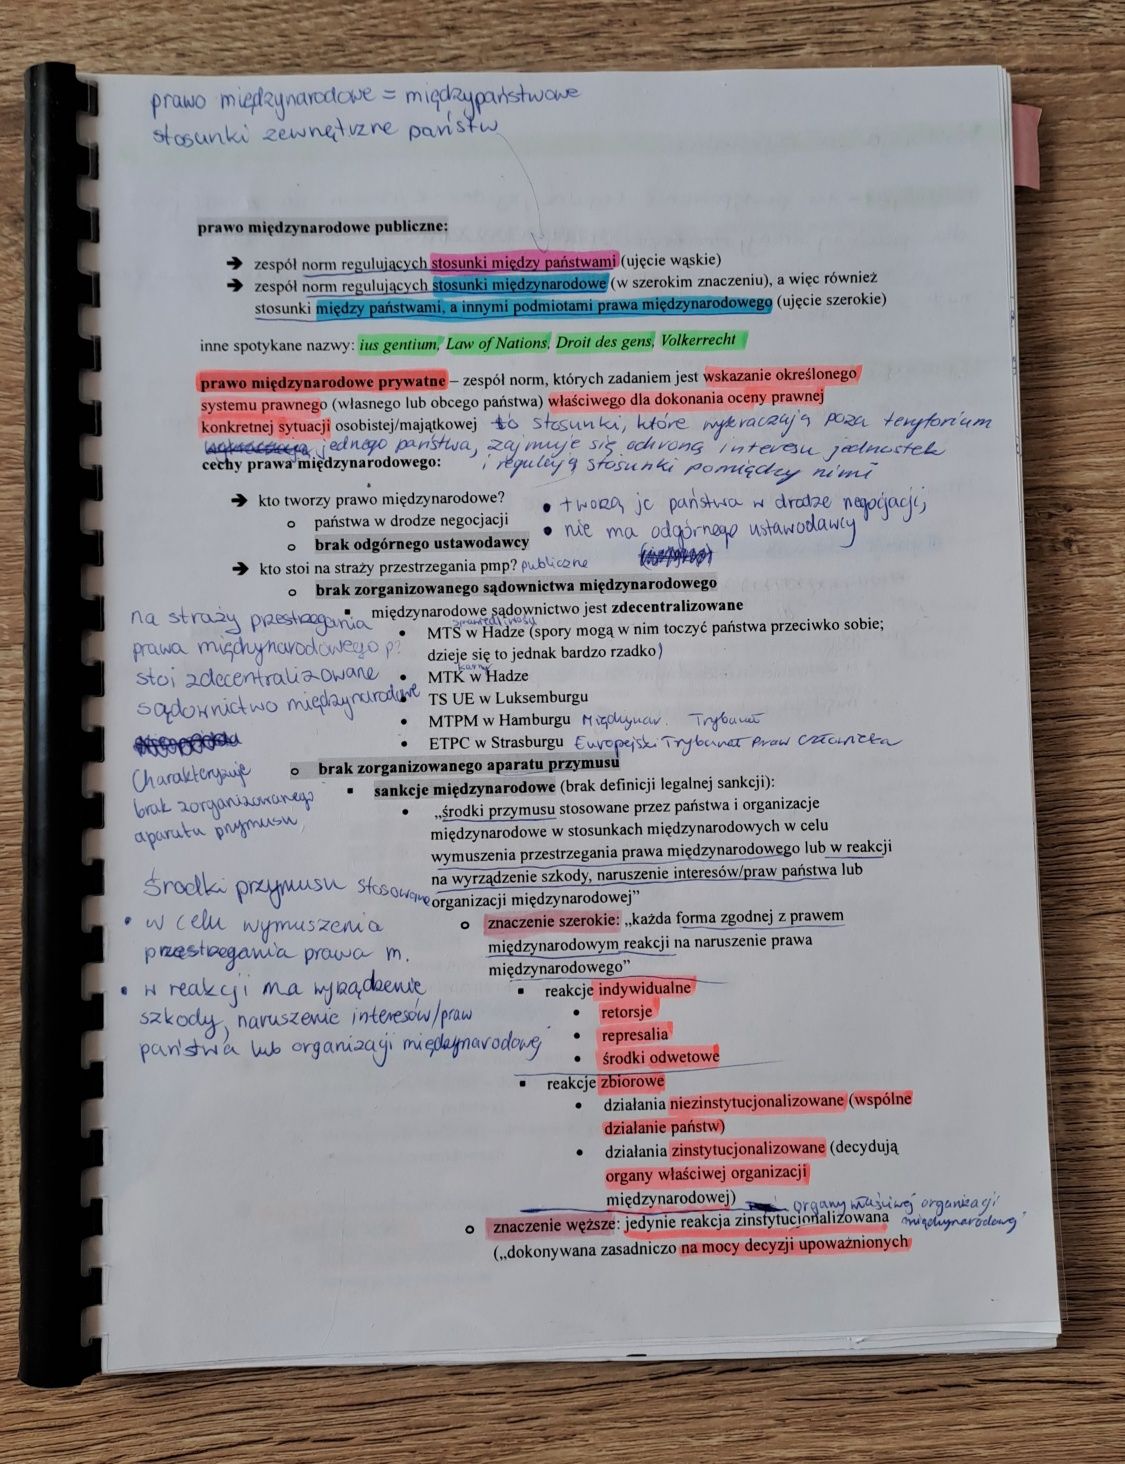 prawo międzynarodowe = międzypaństwowe
stosunki zewnętrzne państw
prawo międzynarodowe publiczne:
➔ zespół norm regulujących stosunki między państwami (ujęcie wąskie)
➔ zespół norm regulujących stosunki międzynarodowe (w szerokim znaczeniu), a więc również
stosunki między państwami, a innymi podmiotami prawa międzynarodowego (ujęcie szerokie)
inne spotykane nazwy: ius gentium, Law of Nations, Droit des gens, Volkerrecht
prawo międzynarodowe prywatne – zespół norm, których zadaniem jest wskazanie określonego
systemu prawnego (własnego lub obcego państwa) właściwego dla dokonania oceny prawnej
konkretnej sytuacji osobistej/majątkowej to stosunki, które wykraczają poza terytorium
jednego państwa, zajmuje się ochroną interesu jednostek
i regulują stosunki pomiędzy nimi
cechy prawa międzynarodowego:
➔ kto tworzy prawo międzynarodowe?
• tworzą je państwa w drodze negocjacji,
o państwa w drodze negocjacji
• nie ma odgórnego ustawodawcy
o brak odgórnego ustawodawcy
➔ kto stoi na straży przestrzegania pmp? publiczne
o brak zorganizowanego sądownictwa międzynarodowego
▪ międzynarodowe sądownictwo jest zdecentralizowane
sprawiedliwości
• MTS w Hadze (spory mogą w nim toczyć państwa przeciwko sobie;
dzieje się to jednak bardzo rzadko)
karny
• MTK w Hadze
• TS UE w Luksemburgu
• MTPM w Hamburgu Międzynar. Trybunał
• ETPC w Strasburgu Europejski Trybunał Praw Człowieka
na straży przestrzegania
prawa międzynarodowego p?
stoi zdecentralizowane
sądownictwo międzynarodowe
Charakteryzuje
brak zorganizowanego
aparatu przymusu,
o brak zorganizowanego aparatu przymusu
▪ sankcje międzynarodowe (brak definicji legalnej sankcji):
• „środki przymusu stosowane przez państwa i organizacje
międzynarodowe w stosunkach międzynarodowych w celu
wymuszenia przestrzegania prawa międzynarodowego lub w reakcji
na wyrządzenie szkody, naruszenie interesów/praw państwa lub
organizacji międzynarodowej”
Środki przymusu stosowane
• w celu wymuszenia
przestrzegania prawa m.
• w reakcji na wyrządzenie
szkody, naruszenie interesów/praw
państwa lub organizacji międzynarodowej
o znaczenie szerokie: „każda forma zgodnej z prawem
międzynarodowym reakcji na naruszenie prawa
międzynarodowego”
▪ reakcje indywidualne
• retorsje
• represalia
• środki odwetowe
▪ reakcje zbiorowe
• działania niezinstytucjonalizowane (wspólne
działanie państw)
• działania zinstytucjonalizowane (decydują
organy właściwej organizacji
międzynarodowej)
organy właściwej organizacji
międzynarodowej
o znaczenie węższe: jedynie reakcja zinstytucjonalizowana
(„dokonywana zasadniczo na mocy decyzji upoważnionych